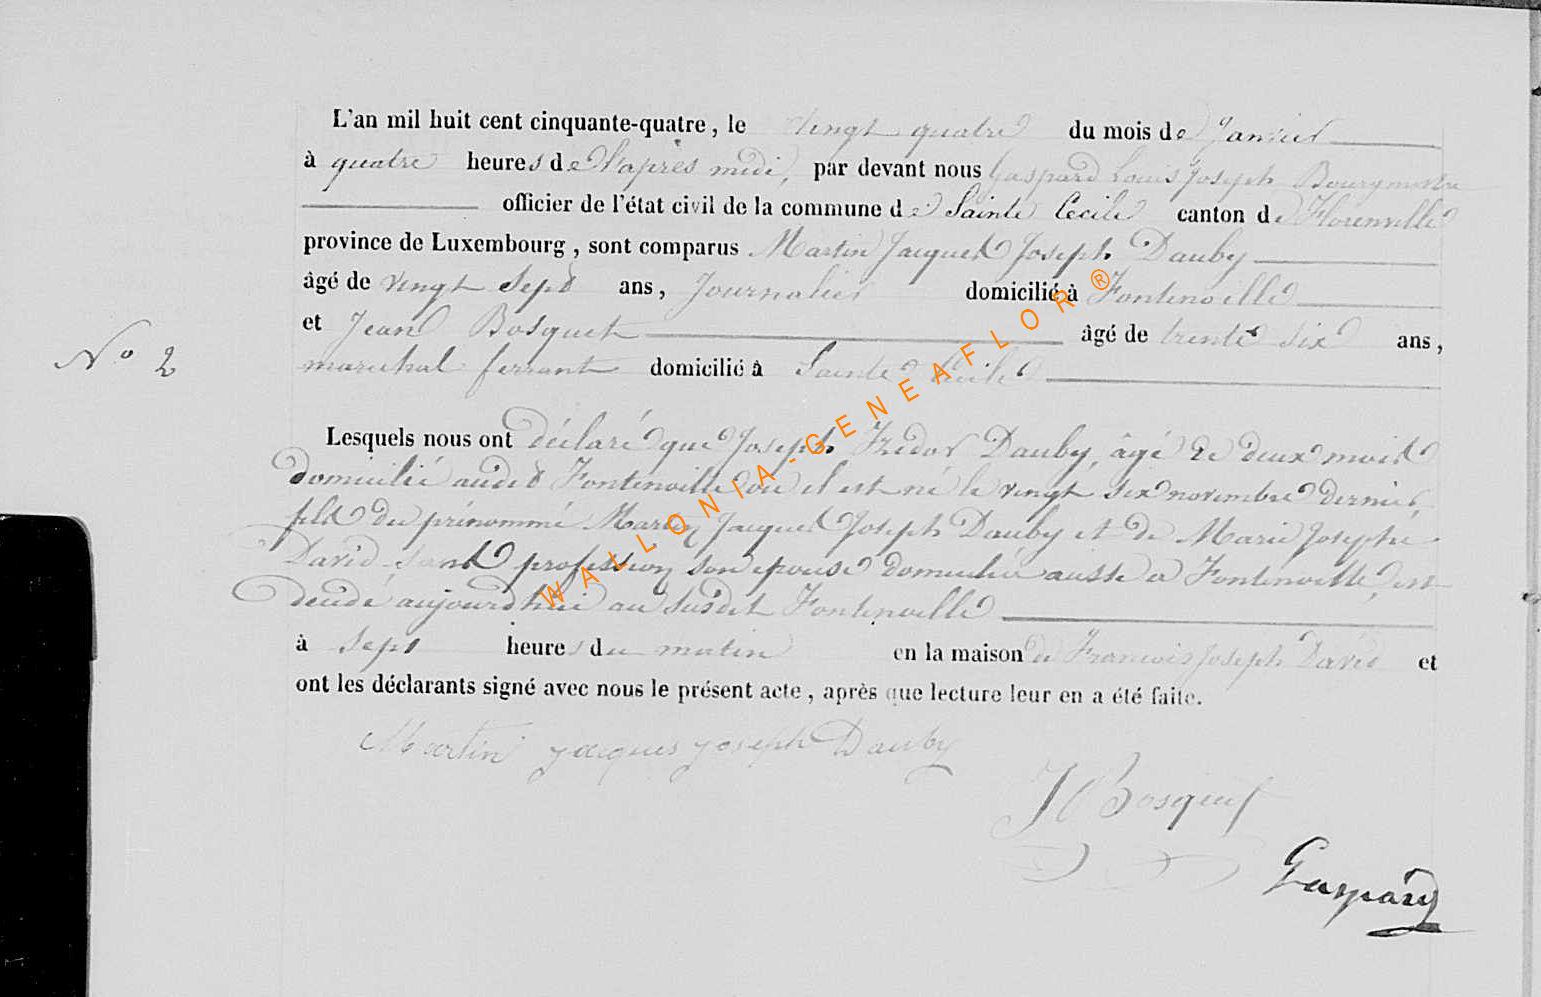 L'an mil huit cent cinquante-quatre, le vingt quatre du mois de Janvier
à quatre heures de l'après midi, par devant nous Gaspard Louis Joseph Bourgmestre
officier de l'état civil de la commune de Sainte Cecile canton de Florenville
province de Luxembourg, sont comparus Martin Jacques Joseph Dauby
âgé de vingt sept ans, Journalier domicilié à Fontenoille
et Jean Bosquet âgé de trente six ans,
N° 2
marechal ferrant domicilié à Sainte Cecile
Lesquels nous ont déclaré que Joseph Fredor Dauby, âgé de deux mois
domicilié audit Fontenoille où il est né le vingt six novembre dernier,
fils du prénommé Martin Jacques Joseph Dauby et de Marie Josephe
David sans profession son epouse domiciliée aussi à Fontenoille, est
décédé aujourd'hui au susdit Fontenoille
à sept heures du matin en la maison de Francois Joseph David et
ont les déclarants signé avec nous le présent acte, après que lecture leur en a été faite.
Martin Jacques Joseph Dauby
J Bosquet
Gaspard
WALLONIA-GENEAFLOR®